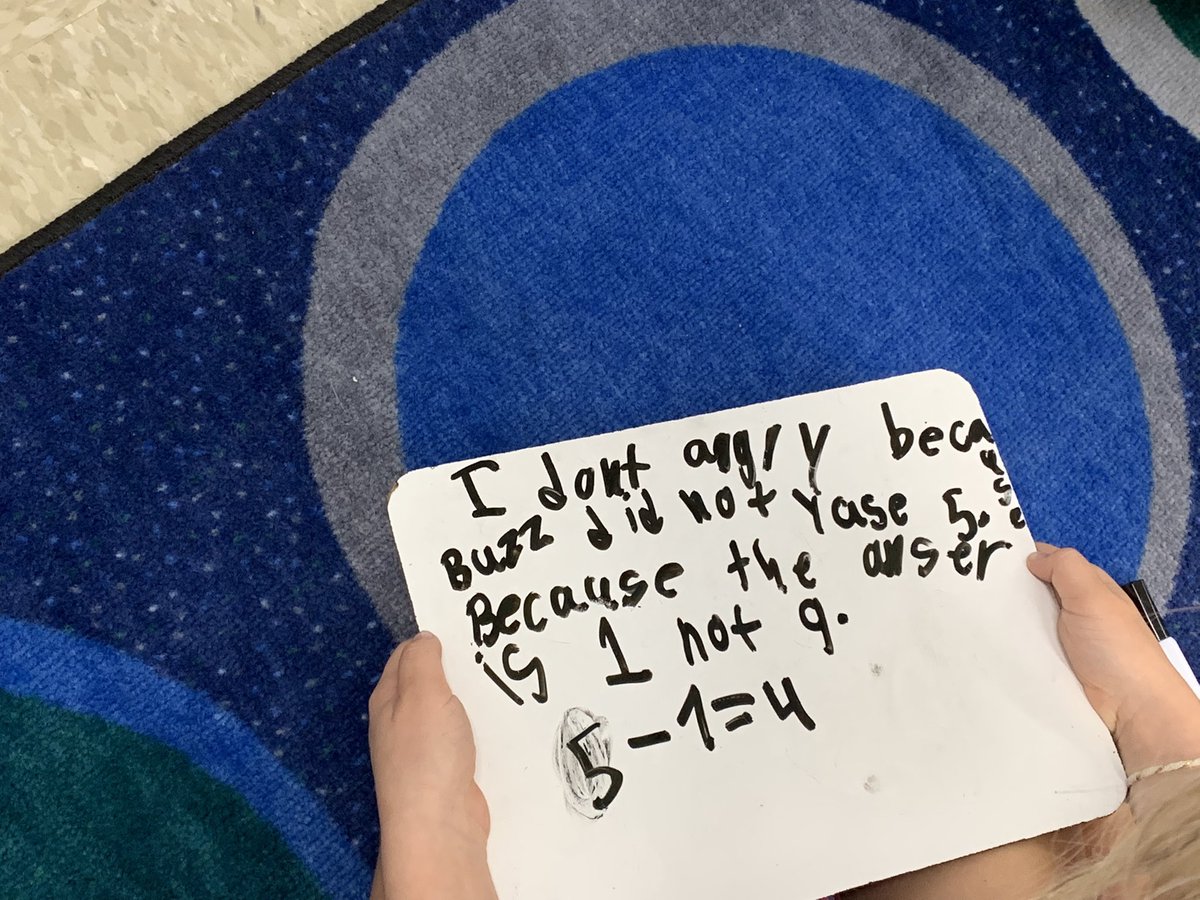 I dont angry because
Buzz did not yase 5.
Because the anser
is 1 not 9.
5-1=4